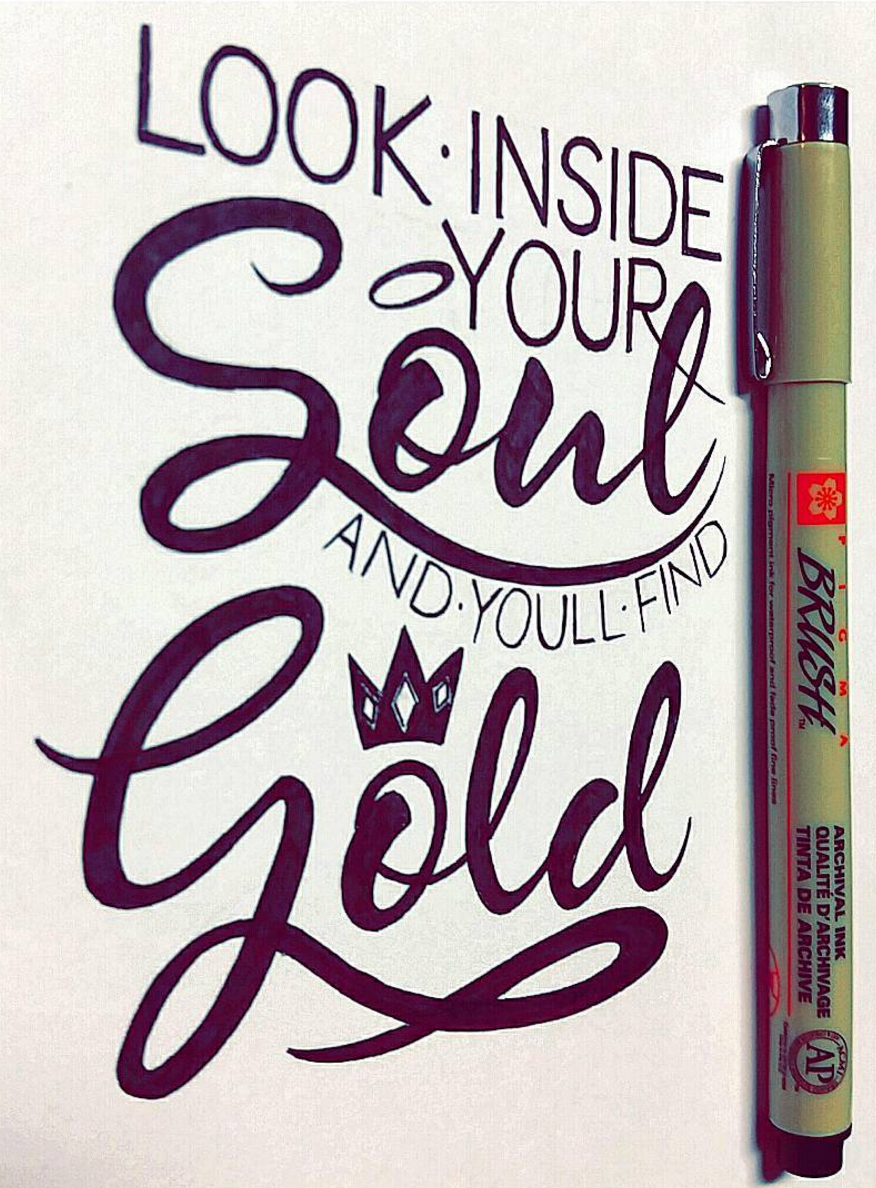 LOOK·INSIDE
YOUR
Soul
AND·YOULL·FIND
Gold
PIGMA
BRUSH™
Micro pigment ink for waterproof and fade proof fine lines
ARCHIVAL INK
QUALITÉ D'ARCHIVAGE
TINTA DE ARCHIVE
AP